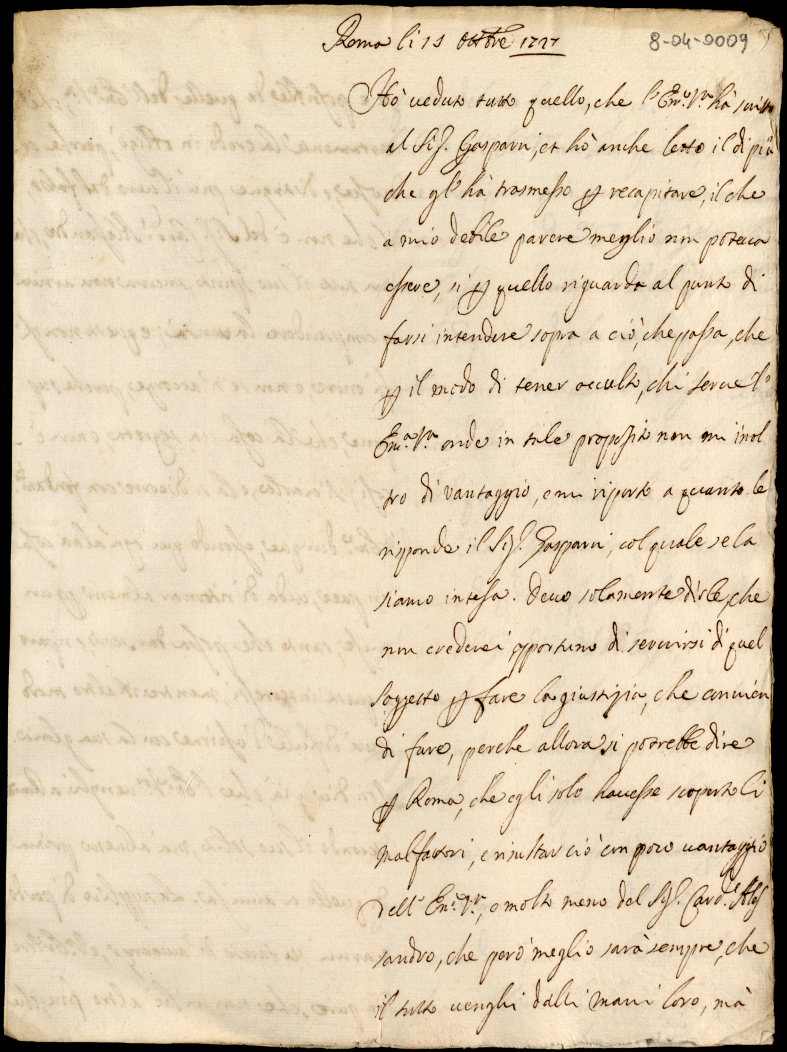 Roma li 11 Ottbre 1727
8-04-0009
Hò ueduto tutto quello, che l'Em.ª V.ª hà scritto
al Sig.r Gasparri, et hò anche letto il di più
che gl'hà trasmesso p recapitare, il che
a mio debile parere meglio non poteua
essere, si p quello riguarda al punto di
farsi intendere sopra a ciò, che passa, che
p il modo di tener occulto, chi serue l'
Em.ª V.ª onde in tale proposito non mi inol
tro di vantaggio, e mi riporto a quanto le
risponde il Sig.r Gasparri, col quale se la
siamo intesa. Deuo solamente dirle, che
non crederei opportuno di seruirsi di quel
soggetto p fare la giustizia, che conuien
di fare, perche allora si potrebbe dire
p Roma, che egli solo hauesse scoperto li
malfattori, e risultar ciò con poco uantaggio
dell'Em.ª V.ª, e molto meno del Sig.r Card.l Ales
sandro, che però meglio sarà sempre, che
il tutto uenghi dalli mani loro, mà